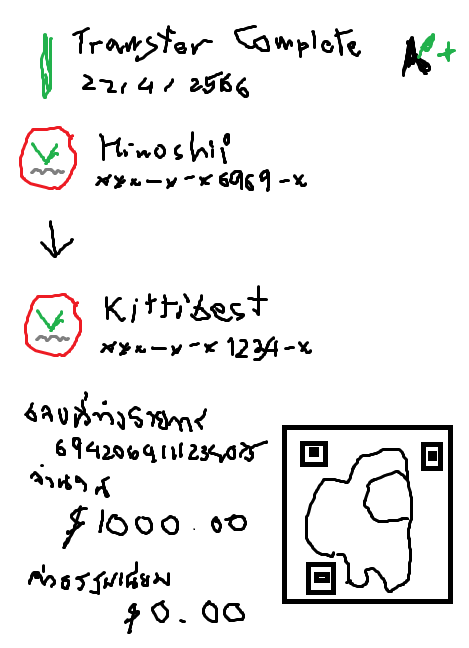 Transfer Complete
22/4/2566
Hinoshii
xxx-x-x6969-x
Kittibest
xxx-x-x1234-x
เลขที่ทำรายการ
จำนวน
$1000.00
ค่าธรรมเนียม
$0.00